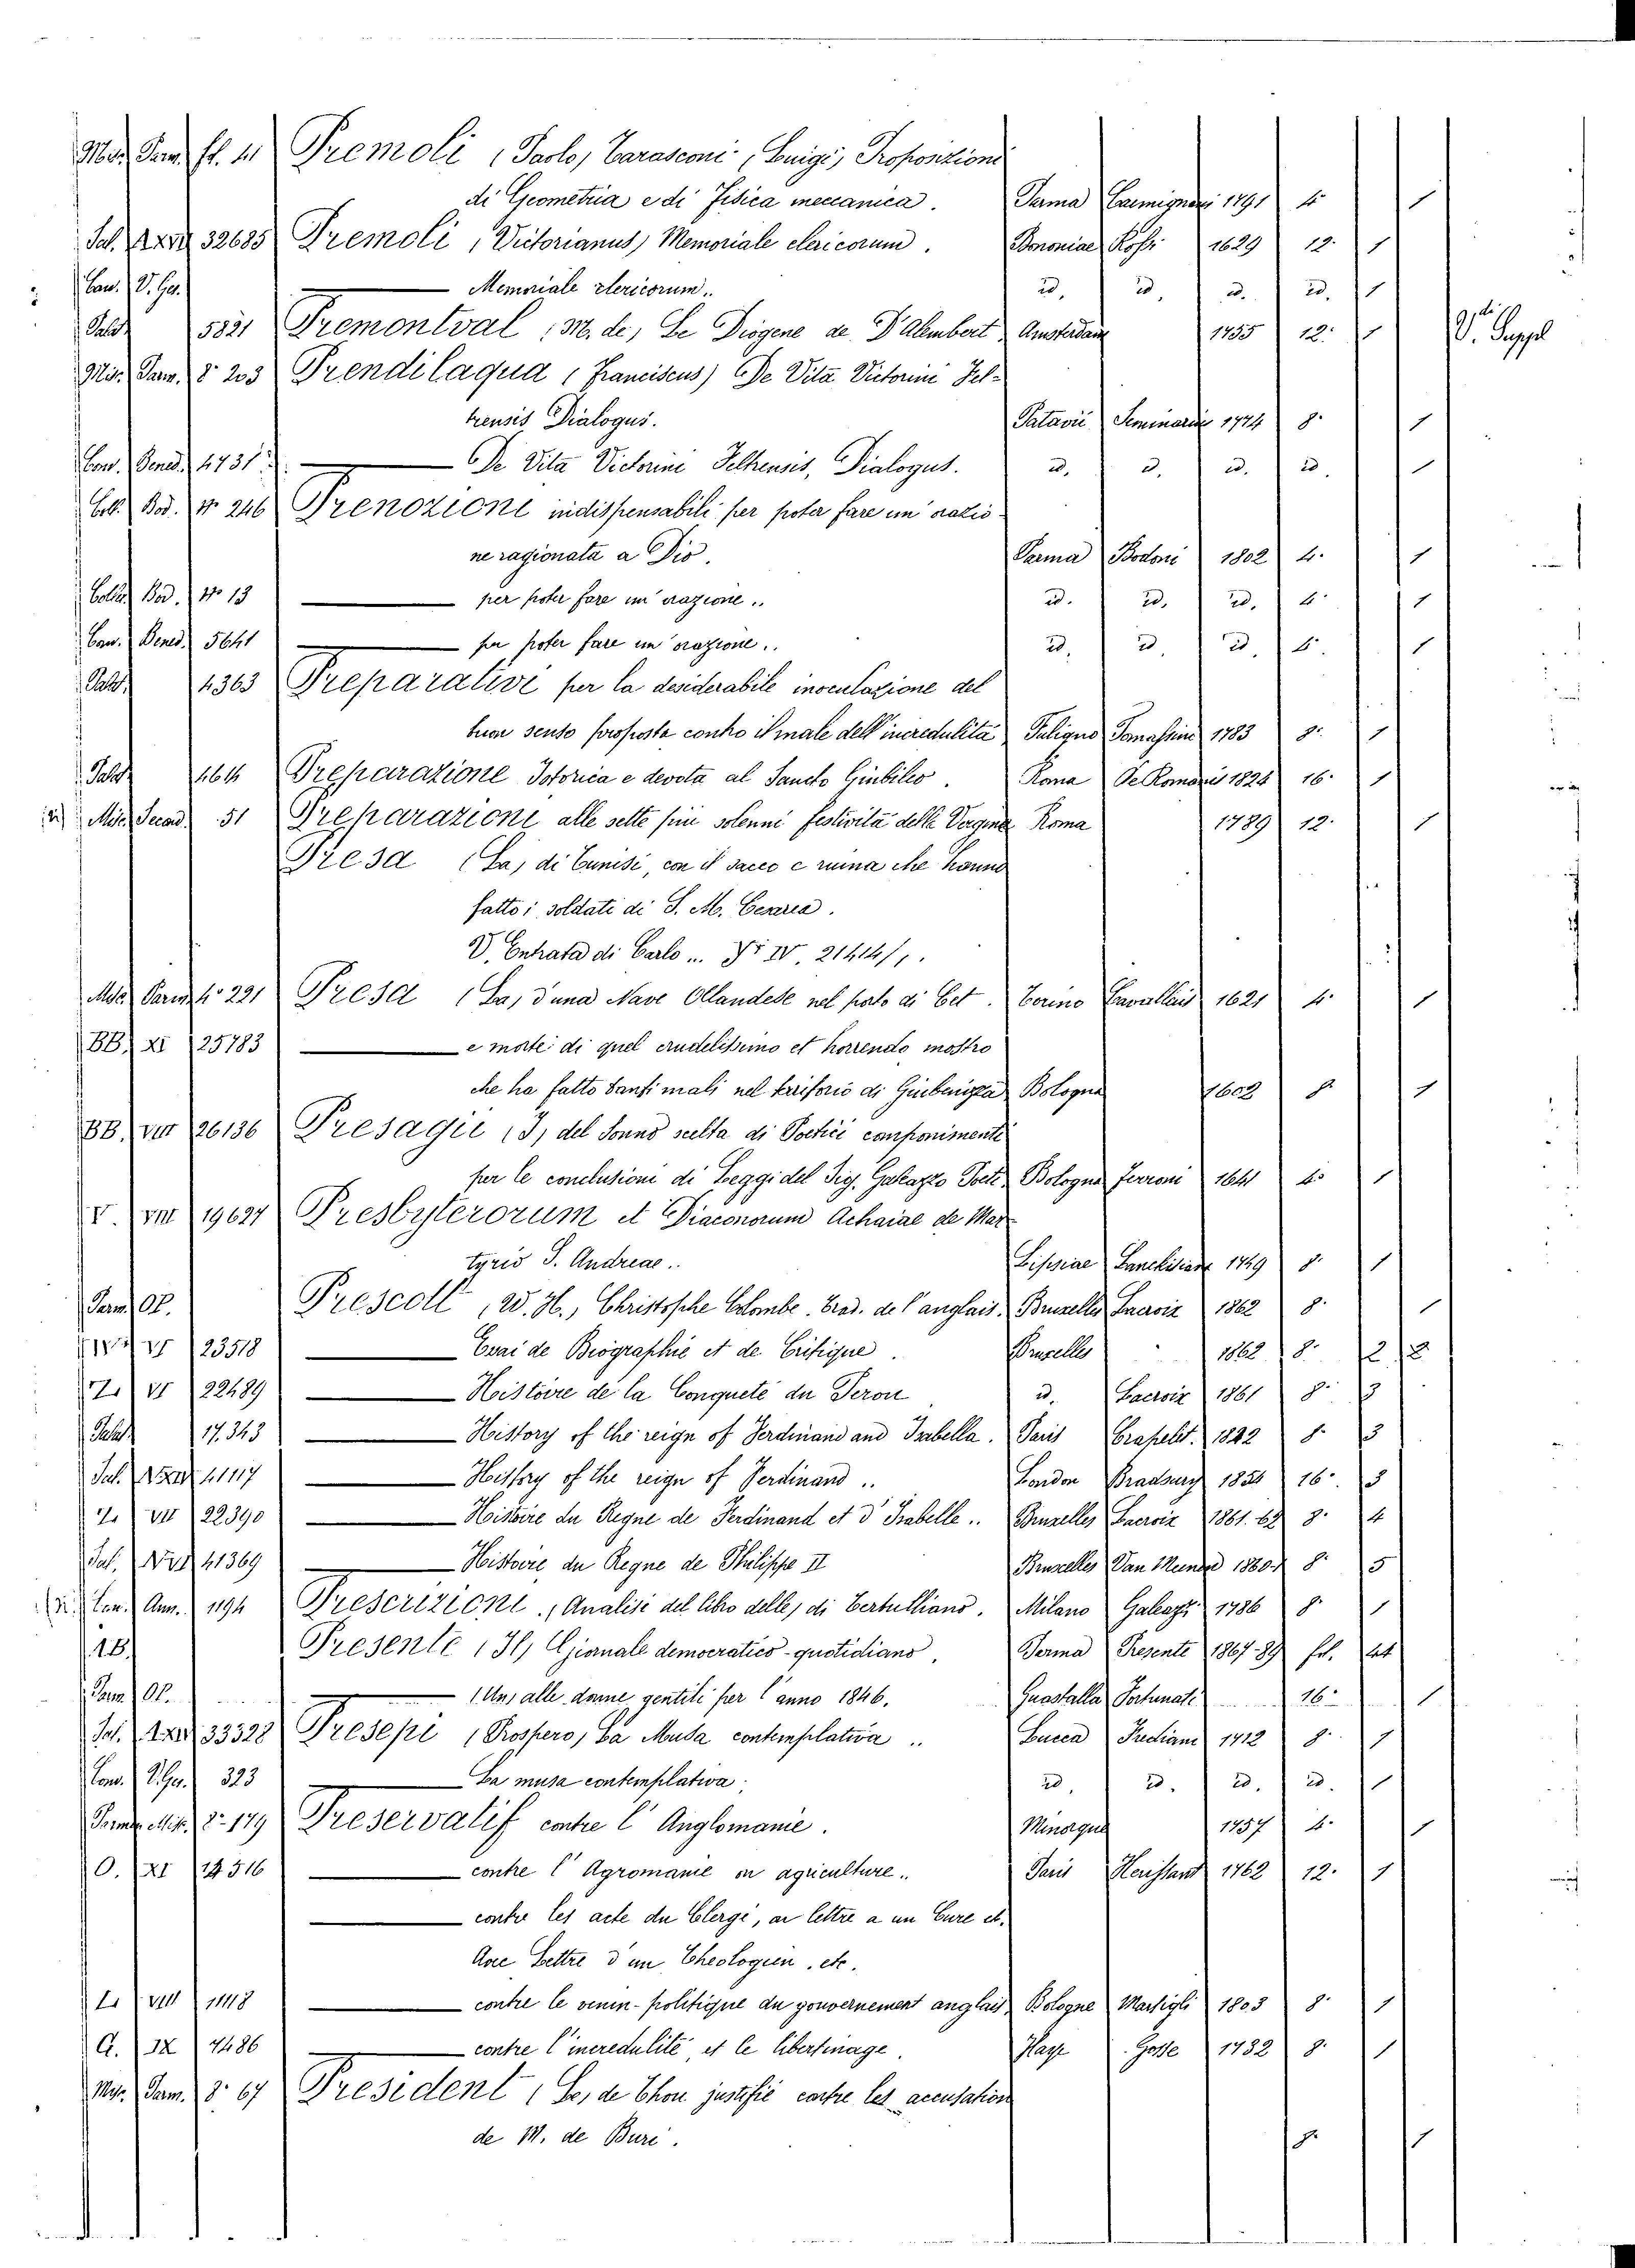 Mis. Parm. fl. 4 Premoli (Paolo) Tarasconi (Luigi) Proposizioni
di Geometria e di Fisica meccanica. Parma Carmignani 1791 4 1
Sal. XXIV 32685 Premoli (Victorianus) Memoriale clericorum. Bononiae Rossi 1629 12. 1
Con. V. Ger. Memoriale clericorum.. id. id. id. id. 1
Palat. 5821 Premontval (M. de) Le Diogene de D'Alembert Amsterdam 1755 12. 1 V. di Suppl
Mis. Parm. 8° 203 Prendilaqua (Franciscus) De Vita Victorini Fel-
trensis Dialogus. Patavii Seminario 1774 8. 1
Con. Bened. 4731 De Vita Victorini Feltrensis, Dialogus. id. id. id. id. 1
Coll. Bod. N° 246 Prenozioni indispensabili per poter fare un' orazio-
ne ragionata a Dio. Parma Bodoni 1802 4. 1
Collez. Bod. N° 13 per poter fare un' orazione.. id. id. id. 4. 1
Con. Bened. 5641 per poter fare un' orazione.. id. id. id. 4. 1
Palat. 4363 Preparativi per la desiderabile inoculazione del
buon senso proposta contro il male dell'incredulità Fuligno Tomassini 1783 8. 1
Palat. 464 Preparazione Istorica e devota al Sancto Giubileo. Roma De Romanis 1824 16. 1
Mis. Second. 51 Preparazioni alle sette più solenni festività della Vergine Roma 1789 12. 1
Presa (La) di Tunisi, con il sacco e ruina che hanno
fatto i soldati di S. M. Cesarea.
V. Entrata di Carlo ... IV. 21414/1.
Mis. Parm. 4° 221 Presa (La) d'una Nave Ollandese nel porto di Cet. Torino Cavalleris 1621 4. 1
BB. XI 25783 e morte di quel crudelissimo et horrendo mostro
che ha fatto tanti mali nel territorio di Bologna 1602 8. 1
BB. VIII 26136 Presagii (I) del Sonno scelta di Poetici componimenti
per le conclusioni di Leggi del Sig. Galeazzo Poeti Bologna Ferroni 1641 4. 1
V. VIII 19627 Presbyterorum et Diaconorum Achaiae de Mar-
tyrio S. Andreae.. Lipsiae Lanckisiana 1749 8. 1
Parm. OP. Prescott (W. H.) Christophe Colombe. Trad. de l'anglais. Bruxelles Lacroix 1862 8. 1
23518 Essai de Biographie et de Critique. Bruxelles 1862 8. 2 2
Z. VI 22489 Histoire de la Conquete du Perou id. Lacroix 1861 8. 3
Palat. 17.343 History of the reign of Ferdinand and Isabella. Paris Crapelet. 1842 8. 3
Sal. 41117 History of the reign of Ferdinand.. London Bradbury 1854 16. 3
Z. VII 22390 Histoire du Regne de Ferdinand et d'Isabelle.. Bruxelles Lacroix 1861.62 8. 4
Sal. 41369 Histoire du Regne de Philippe II Bruxelles Van Meenen 1860. 8. 5
Con. Ann. 1194 Prescrizioni. (Analisi del libro delle) di Tertulliano. Milano Galeazzi 1786 8. 1
18. Presente (Il) Giornale democratico-quotidiano. Parma Presente 1867-89 fol.
Parm. OP. (Un) alle donne gentili per l'anno 1846. Guastalla Fortunati 16. 1
Sal. XXIV 33328 Presepi (Prospero) La Musa contemplativa.. Lucca Frediani 1712 8. 1
Con. V. Ger. 323 La musa contemplativa. id. id. id. id. 1
Parm. Mis. 8. 179 Preservatif contre l'Anglomanie. Minorque 1757 4. 1
O. XI 14516 contre l'Agromanie ou agriculture.. Paris Herissant 1762 12. 1
contre les acte du Clergé, ou lettre a un Cure et.
Avec Lettre d'un Theologien. etc.
L. VIII 1118 contre le venin-politique du gouvernement anglais Bologne Marsigli 1803 8. 1
G. IX 7486 contre l'incredulité et le libertinage. Haye Gosse 1732 8. 1
Mis. Parm. 8. 67 President (Le) de Thou justifié contre les accusation
de M. de Buri. 8. 1